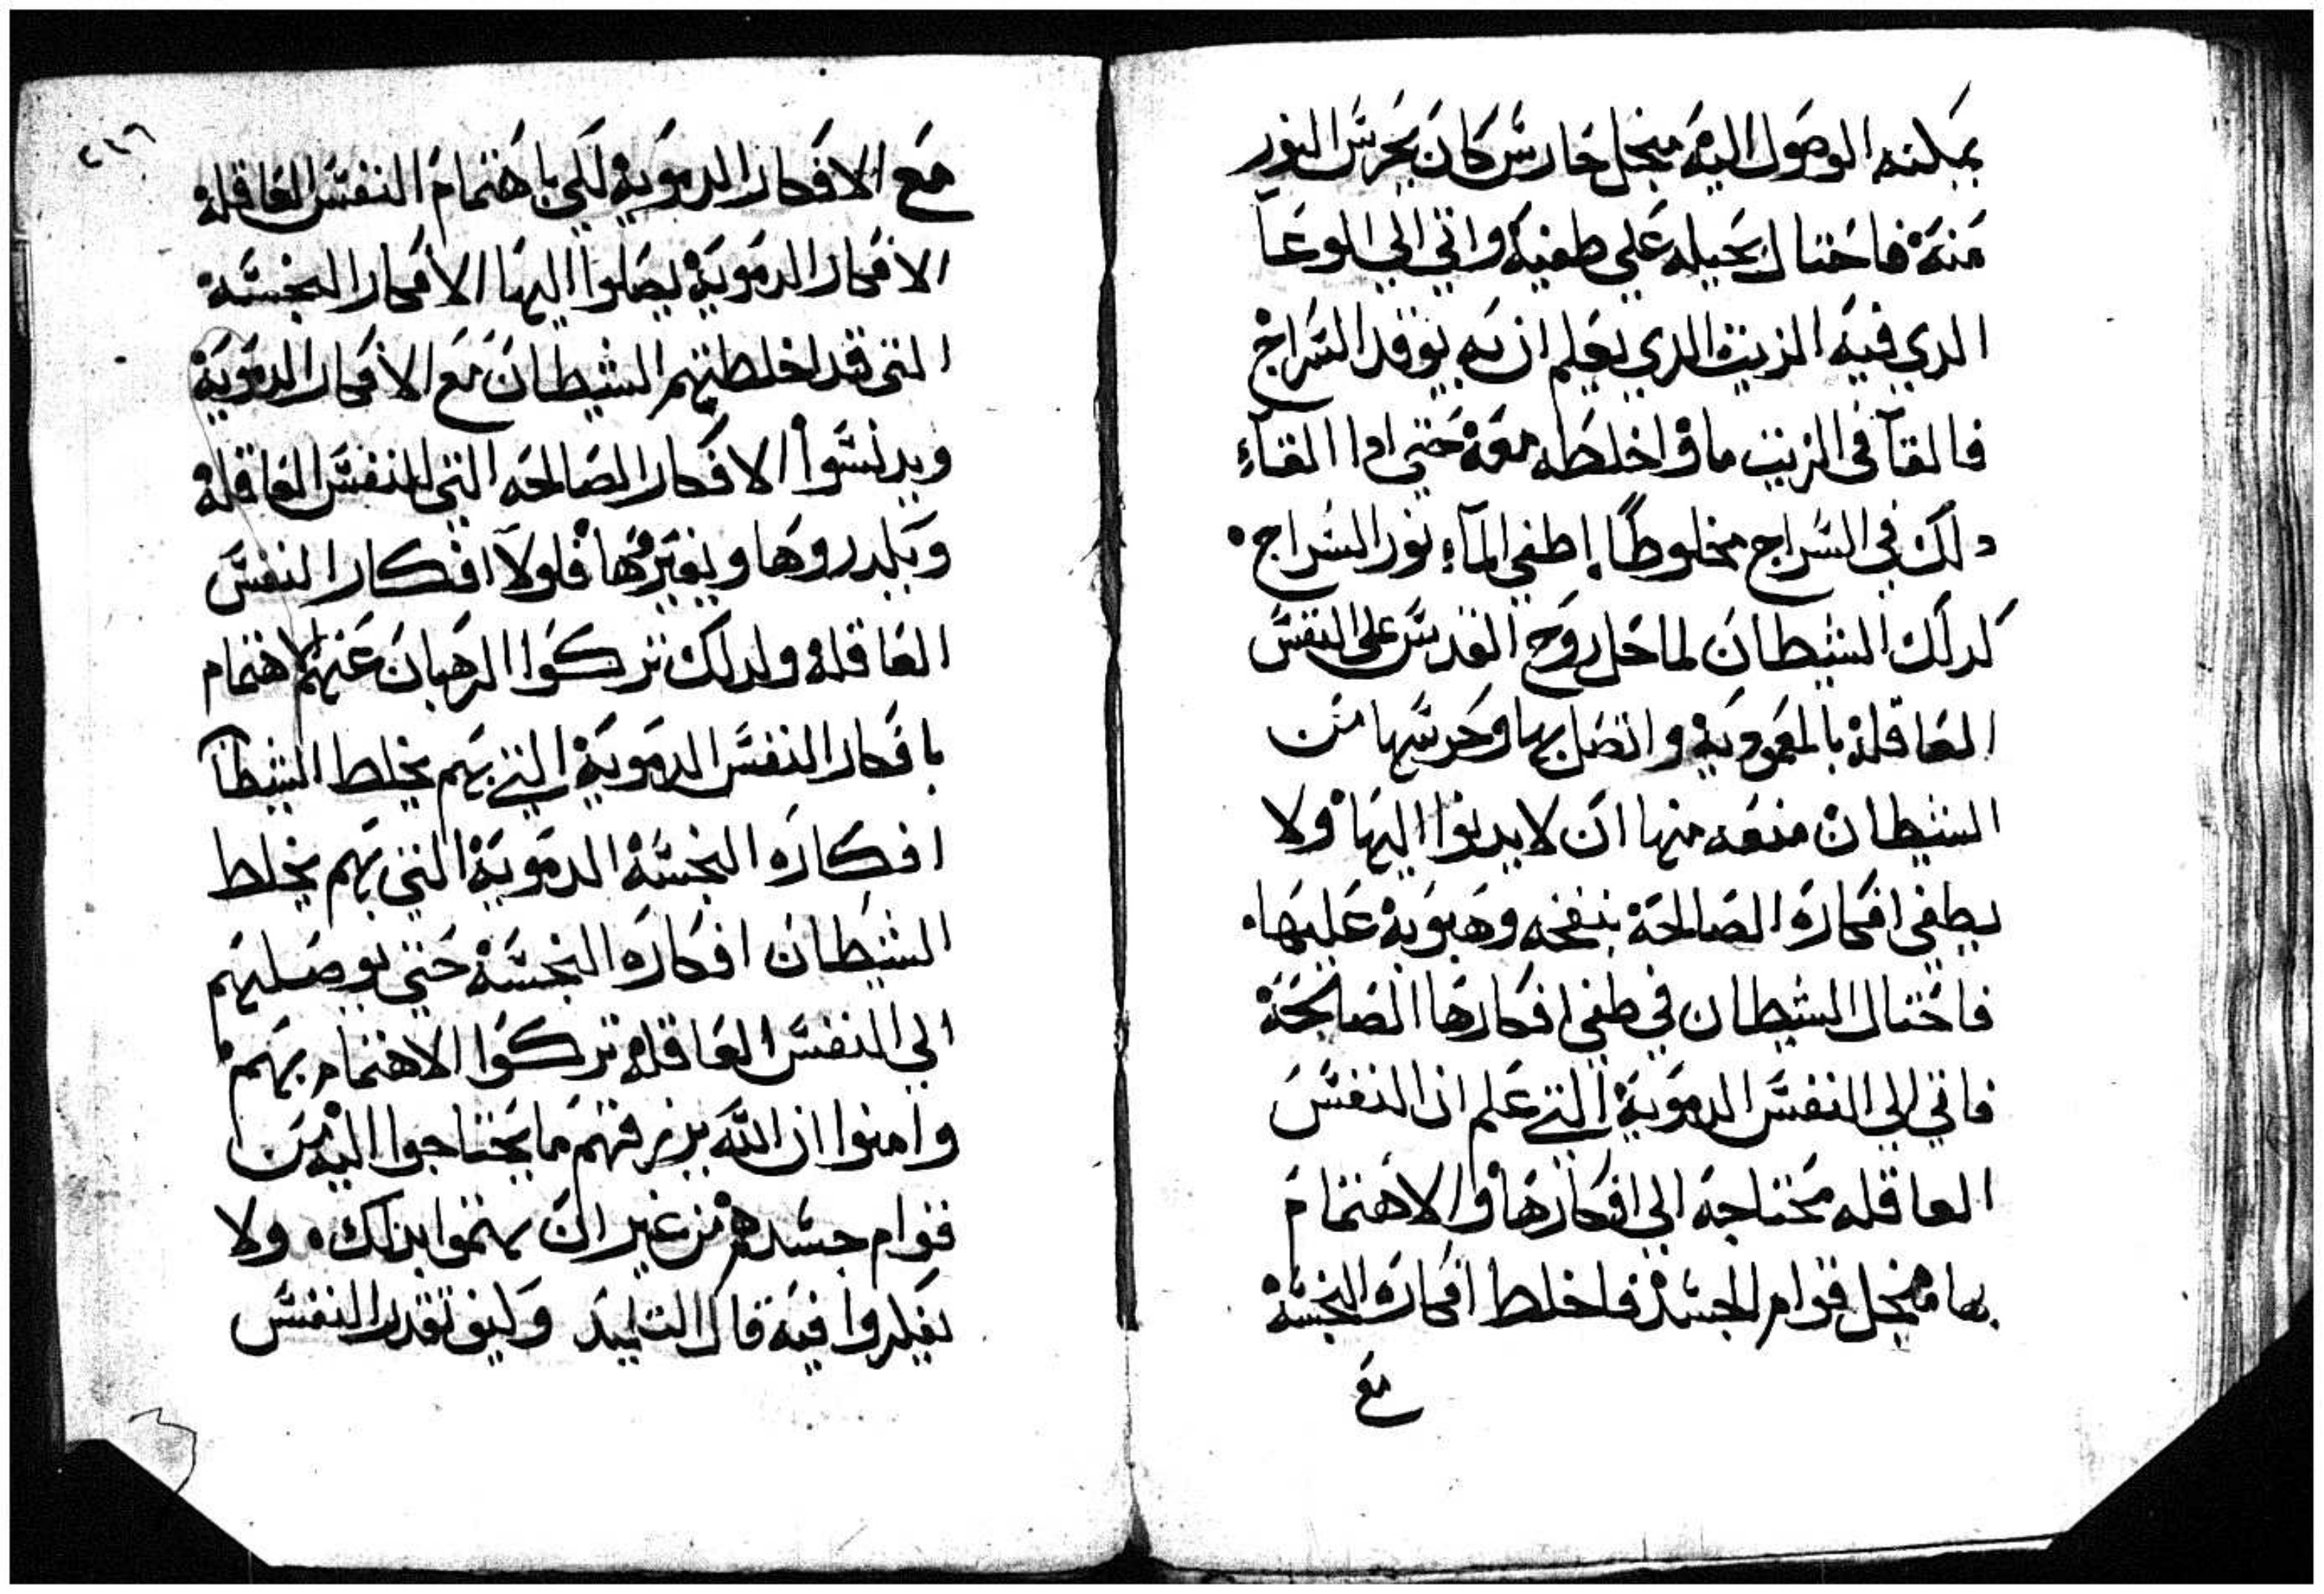 يمكنه الوصول اليه منجل حارس كان يحرس النور
منه فاحتال بحيله علي طفيه واتي الي الوعا
الدي فيه الزيت الدي يعلم ان به يوقد السراج
فالقا في الزيت ماؤ اخلطه معه حتي ادا القاء
دلك في السراج مخلوطًا إطفي المآء نور السراج
كدلك الشيطان لما حل روح القدس علي النفس
العاقله بالمعموديه واتصل بها وحرسها من
الشيطان منعه منها ان لا يدنوا اليها ولا
يطفي افكاره الصالحة بنفخه وهبوبه عليها
فاحتال الشيطان في طفي افكارها الصالحة
فاتي الي النفس الدموية التي علم ان النفس
العاقله محتاجه الي افكارها والاهتمام
بها منجل قوام الجسد فاخلط افكاره النجسة
مع
٢١٦
مع الافكار الدموية لكي باهتمام النفس العاقلة
الافكار الدموية يصلوا اليها الافكار النجسة
التي قد اخلطتهم الشيطان مع الافكار الدموية
ويدنسوا الافكار الصالحه التي للنفس العاقلة
ويكدروها ويغيروها فلولا افكار النفس
العاقلة ولدلك تركوا الرهبان عنهم الاهتمام
بافكار النفس الدموية التي بهم يخلط الشيطا
افكاره النجسة الدموية التي بهم يخلط
الشيطان افكاره النجسة حتي يوصلهم
الي النفس العاقلة تركوا الاهتمام بهم
وامنوا ان الله يرزقهم ما يحتاجوا اليه من
قوام جسدهم من غير ان يهتموا بدلك ولا
يفكروا فيه قال التلميد وكيف تقدر النفس